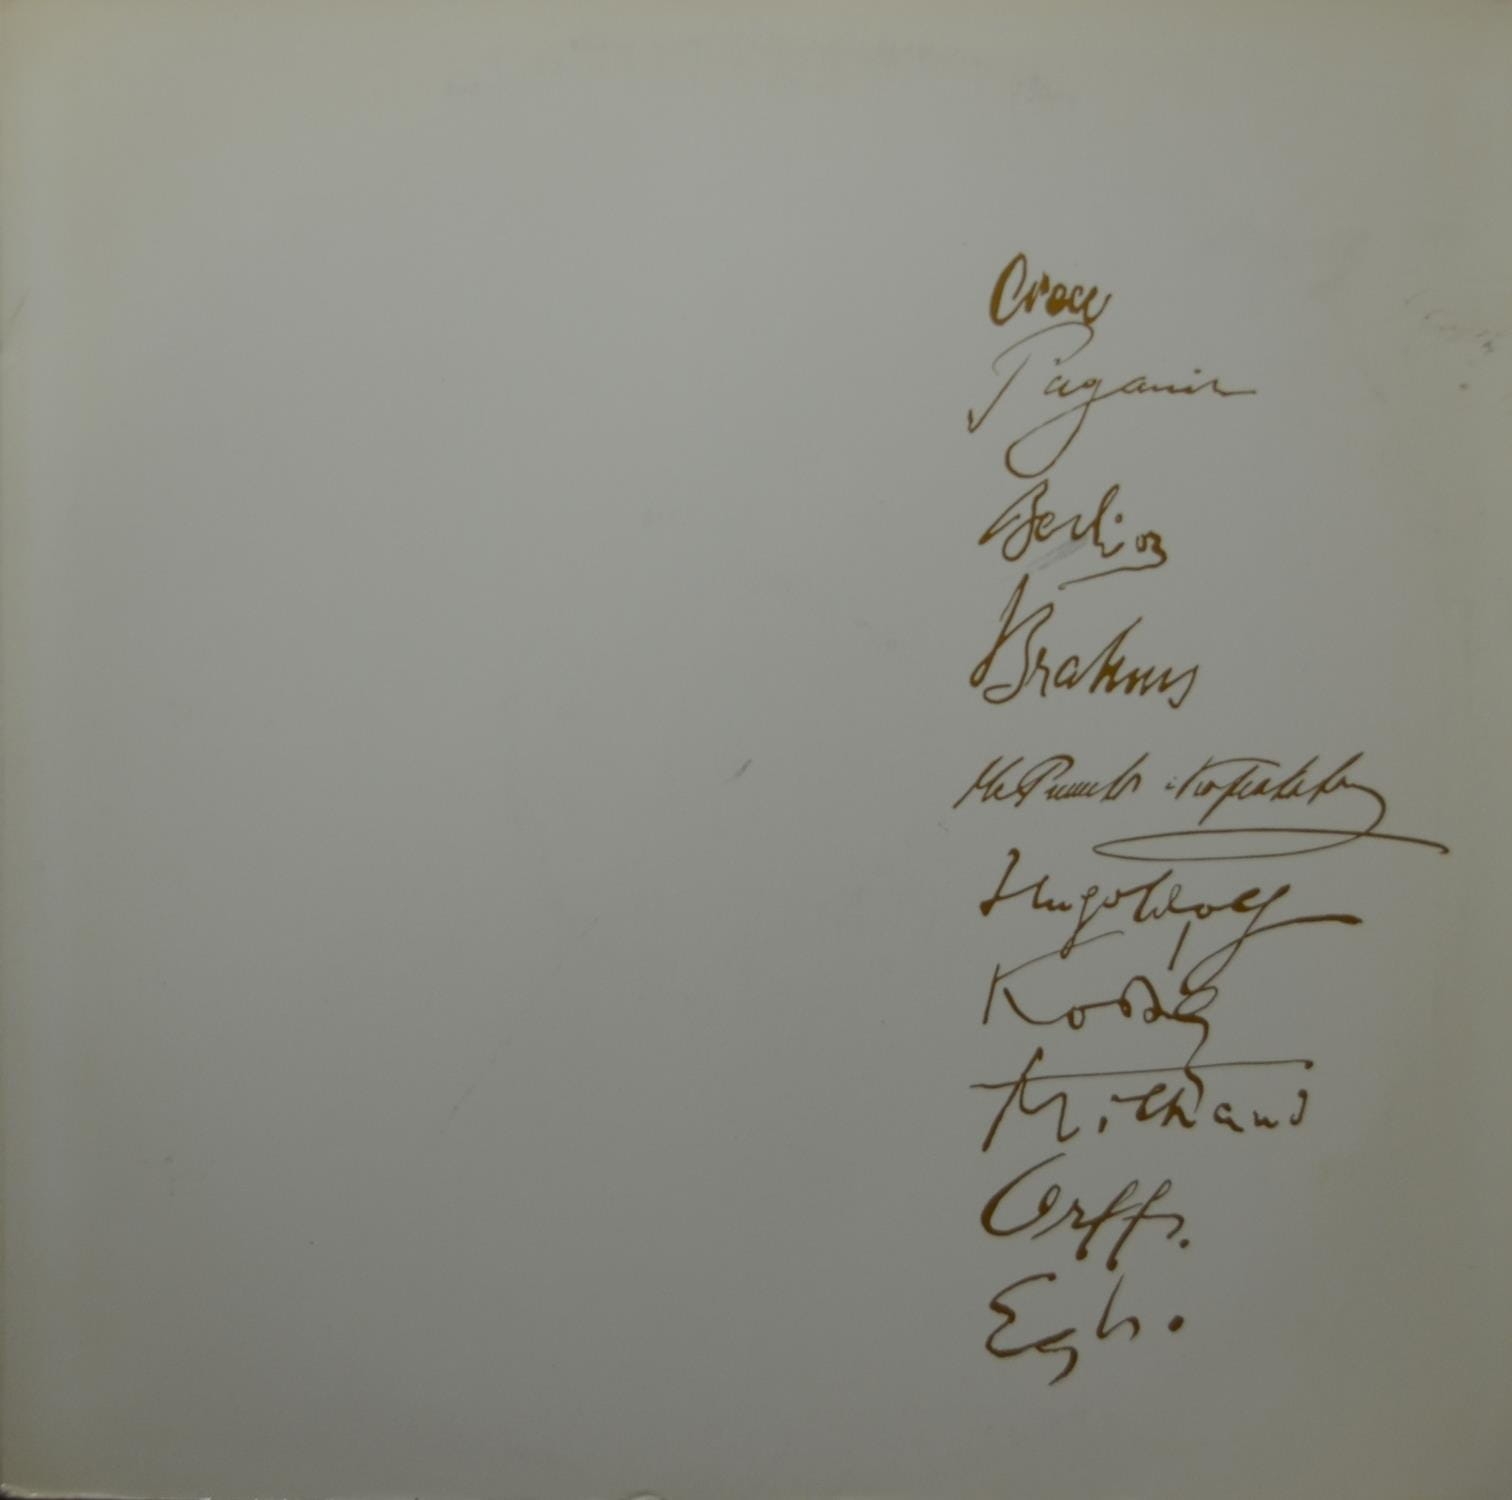 Croce
Paganini
Berlioz
Brahms
Н. Римскій-Корсаковъ
Hugo Wolf
Kodály
Milhaud
Orff.
Egk.